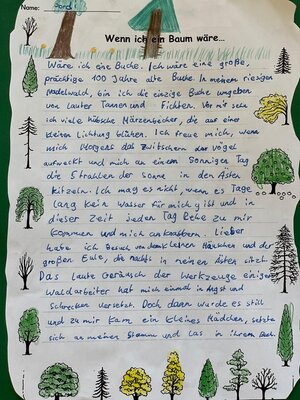 Name: Ferdi
Wenn ich ein Baum wäre...
Wäre ich eine Buche. Ich wäre eine große,
prächtige 100 Jahre alte Buche. In meinem riesigen
Nadelwald, bin ich die einzige Buche umgeben
von lauter Tannen und Fichten. Vor mir sehe
ich viele hübsche Märzenbecher, die auf einer
kleinen Lichtung blühen. Ich freue mich, wenn
mich Morgens das Zwitschern der Vögel
aufweckt und mich an einem Sonnigen Tag
die Strahlen der Sonne in den Ästen
kitzeln. Ich mag es nicht, wenn es Tage
lang kein Wasser für mich gibt und in
dieser Zeit jeden Tag Rehe zu mir
kommen und mich anknabbern. Lieber
habe ich Besuch von den kleinen Mäuschen und der
großen Eule, die nachts in meinen Ästen sitzt.
Das laute Geräusch der Werkzeuge einiger
Waldarbeiter hat mich einmal in Angst und
Schrecken versetzt. Doch dann wurde es still
und zu mir kam ein kleines Mädchen, setzte
sich an meinen Stamm und las in ihrem Buch.